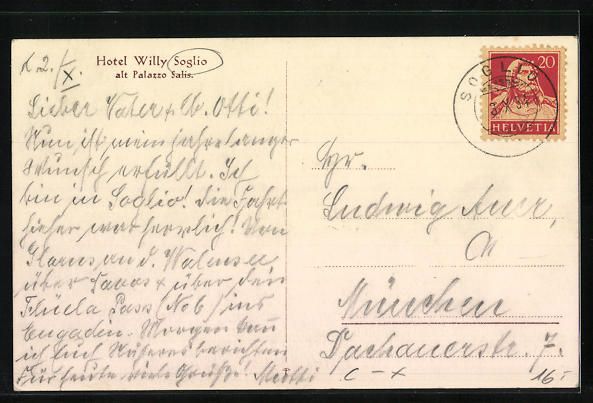 K 2./X.
Hotel Willy Soglio
alt Palazzo Salis.
Lieber Vater u. lb. Otti!
Nun ist mein jahrelanger
Wunsch erfüllt. Ich
bin in Soglio! Die Fahrt
hieher war herrlich! Von
Glarus an d. Walensee
über Davos + über den
Flüela Pass (Nob) ins
Engadin. Morgen
ich Euch Näheres berichten
Für heute viele Grüße! Mutti
SOGLIO
20
HELVETIA
Hr.
Ludwig Auer,
München
Dachauerstr. 7.
C - x
16.-